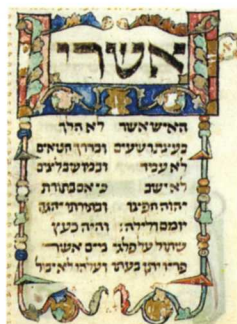 אשרי
האיש אשר לא הלך
בעצת רשעים ובדרך חטאים
לא עמד ובמושב לצים
לא ישב כי אם בתורת
יהוה חפצו ובתורתו יהגה
יומם ולילה: והיה כעץ
שתול על פלגי מים אשר
פריו יתן בעתו ועלהו לא יבול